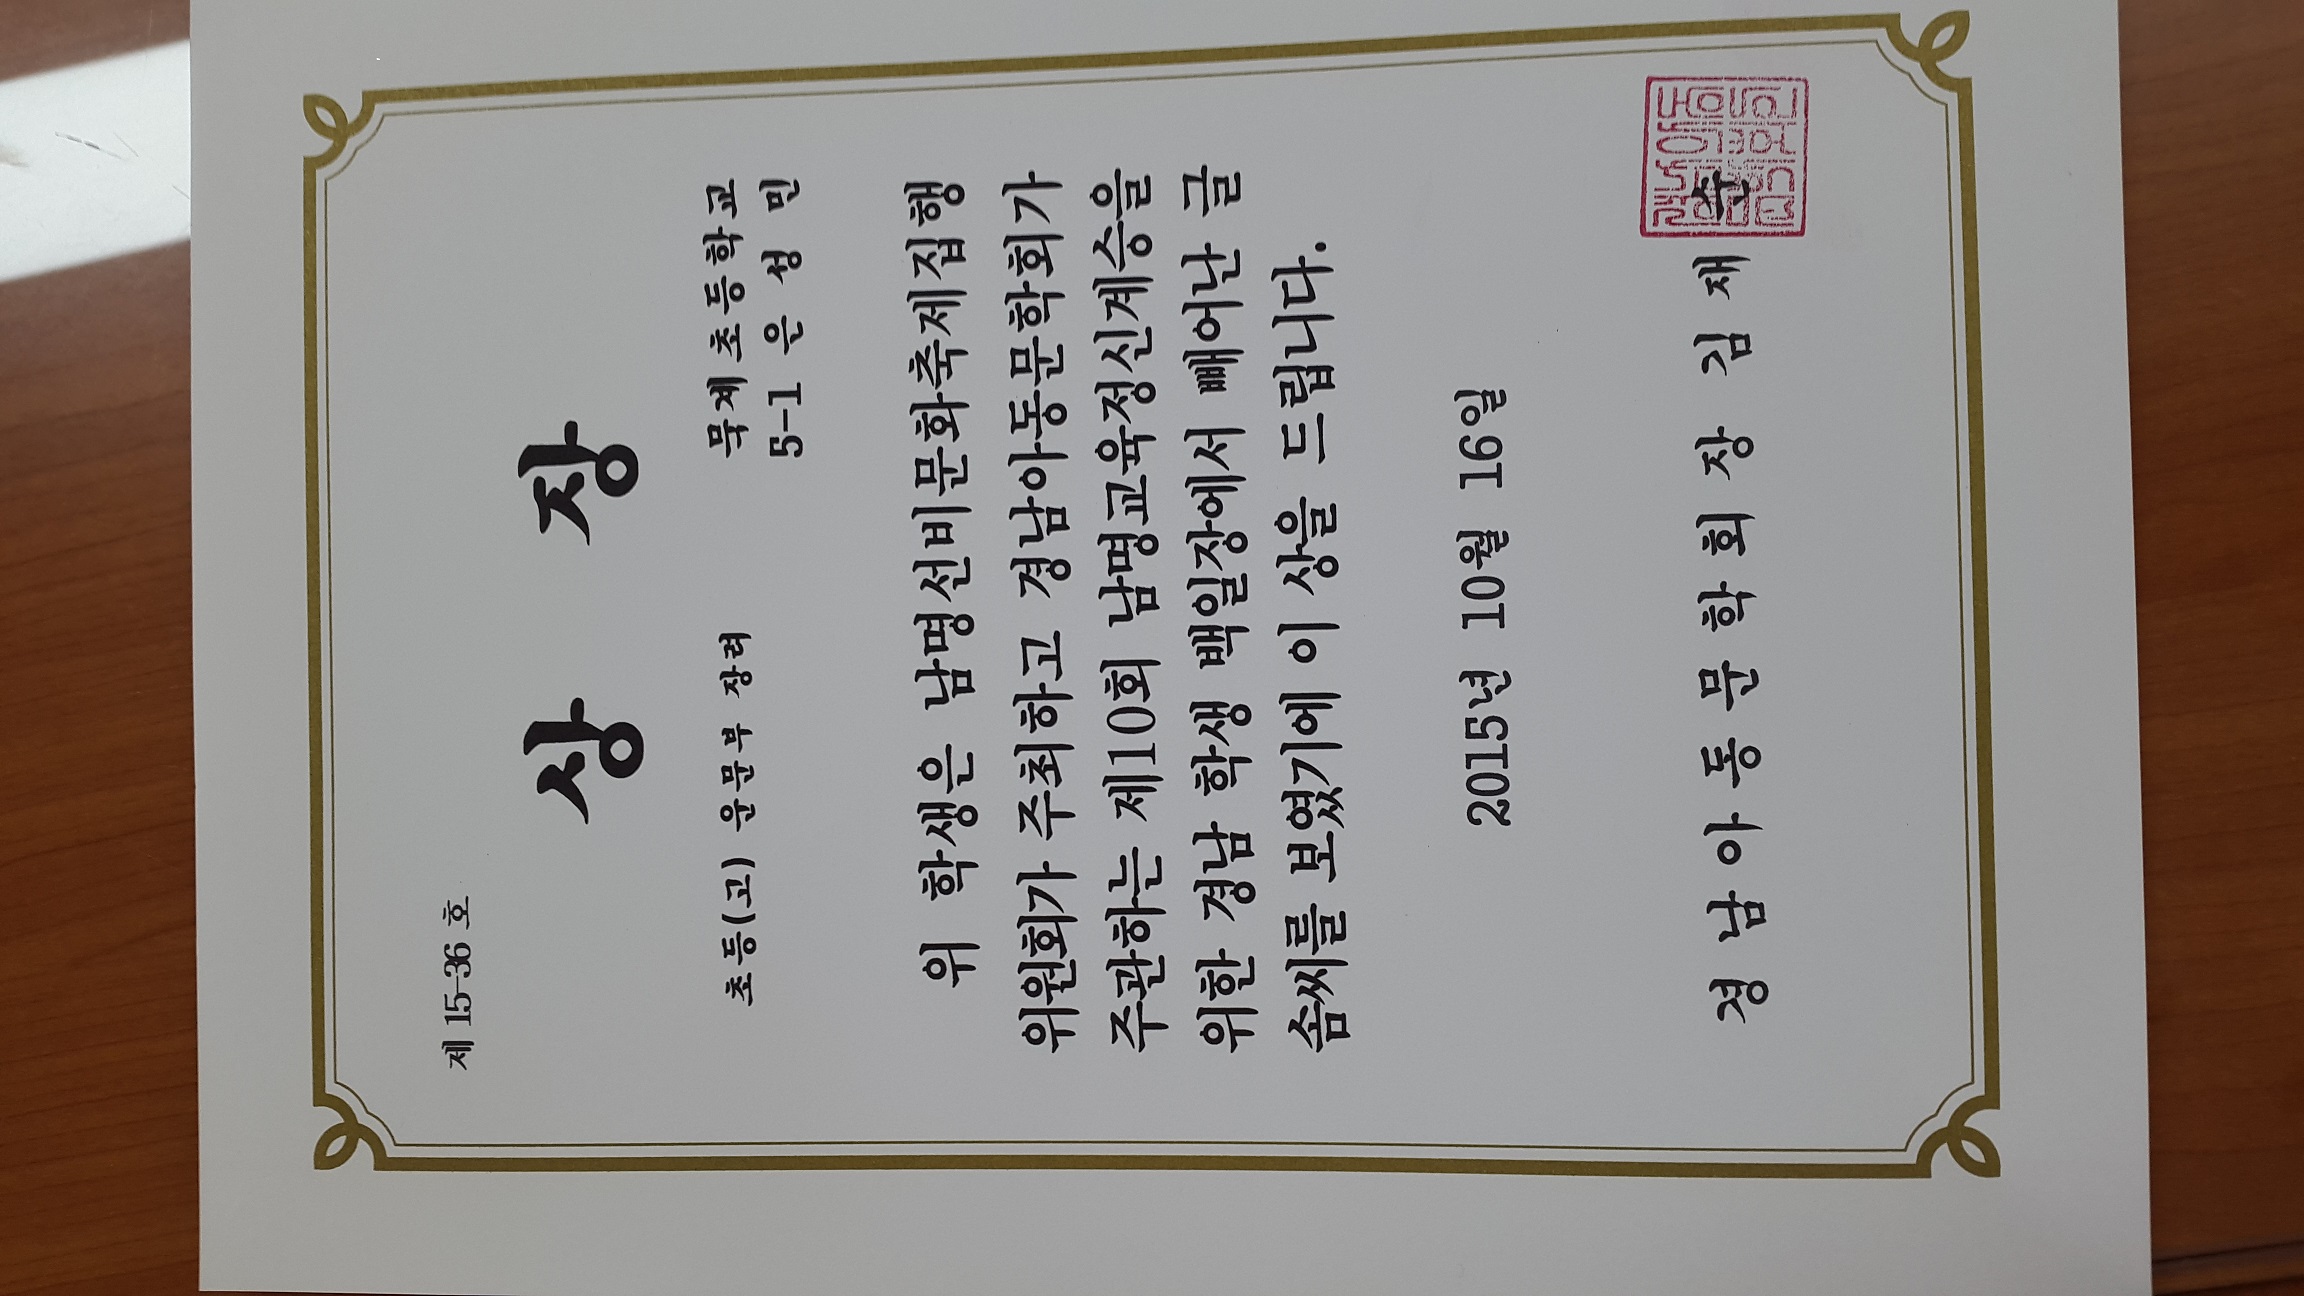 제 15-36 호
상 장
초등(고) 운문부 장려
묵계초등학교
5-1 은 성 민
위 학생은 남명선비문화축제집행
위원회가 주최하고 경남아동문학회가
주관하는 제10회 남명교육정신계승을
위한 경남 학생 백일장에서 빼어난 글
솜씨를 보였기에 이 상을 드립니다.
2015년 10월 16일
경남아동문학회장 김재순